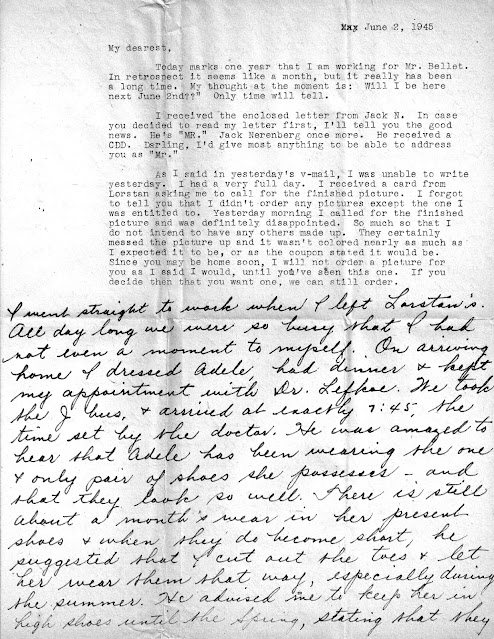 May June 2, 1945
My dearest,
Today marks one year that I am working for Mr. Bellet.
In retrospect it seems like a month, but it really has been
a long time. My thought at the moment is: Will I be here
next June 2nd??" Only time will tell.
I received the enclosed letter from Jack N. In case
you decided to read my letter first, I'll tell you the good
news. He's "MR." Jack Nerenberg once more. He received a
CDD. Darling, I'd give most anything to be able to address
you as "Mr."
As I said in yesterday's v-mail, I was unable to write
yesterday. I had a very full day. I received a card from
Lorstan asking me to call for the finished picture. I forgot
to tell you that I didn't order any pictures except the one I
was entitled to. Yesterday morning I called for the finished
picture and was definitely disappointed. So much so that I
do not intend to have any others made up. They certainly
messed the picture up and it wasn't colored nearly as much as
I expected it to be, or as the coupon stated it would be.
Since you may be home soon, I will not order a picture for
you as I said I would, until you've seen this one. If you
decide then that you want one, we can still order.
I went straight to work when I left Lorstan's.
All day long we were so busy that I had
not even a moment to myself. On arriving
home I dressed Adele, had dinner & kept
my appointment with Dr. Leffkoe. We took
the J bus, & arrived at exactly 7:45, the
time set by the doctor. He was amazed to
hear that Adele has been wearing the one
& only pair of shoes she possesses - and
that they look so well. There is still
about a month's wear in her present
shoes & when they do become short, he
suggested that I cut out the toes & let
her wear them that way, especially during
the summer. He advised me to keep her in
high shoes until the Spring, stating that they